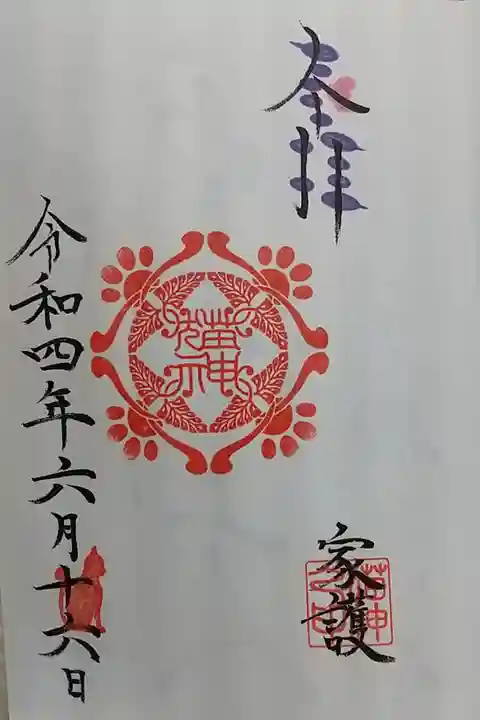 奉拝
猫神
家護
令和四年六月十六日